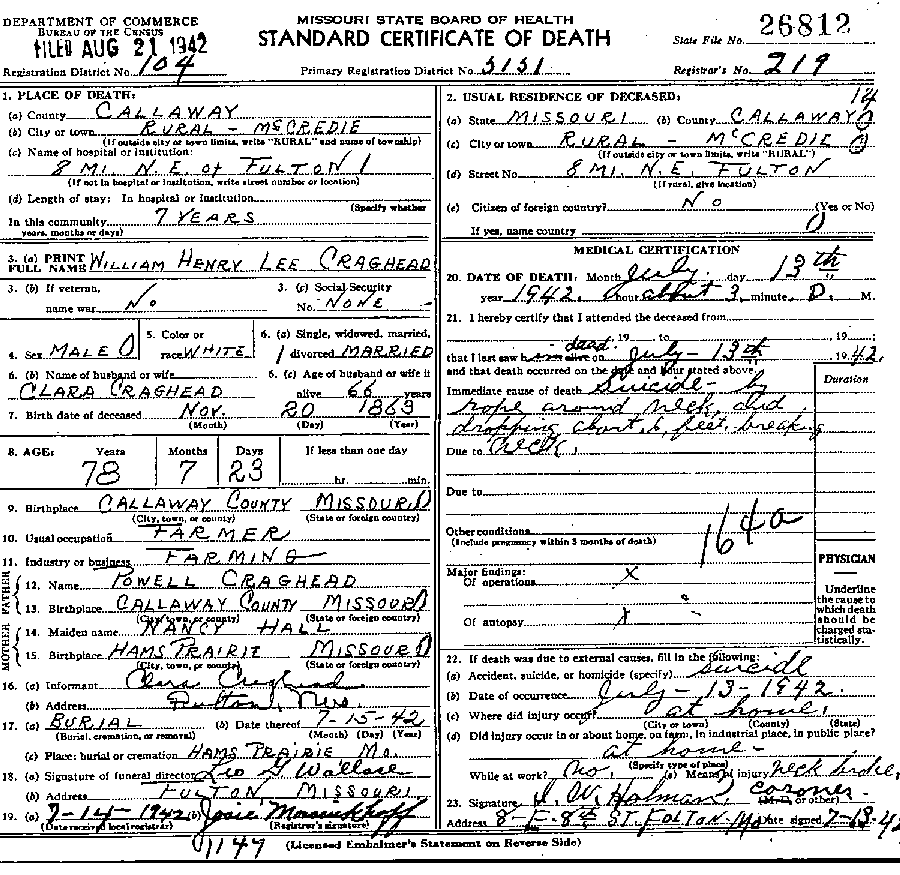 DEPARTMENT OF COMMERCE
BUREAU OF THE CENSUS
FILED AUG 21 1942
Registration District No. 104
MISSOURI STATE BOARD OF HEALTH
STANDARD CERTIFICATE OF DEATH
Primary Registration District No. 5151
State File No. 26812
Registrar's No. 219
1. PLACE OF DEATH:
(a) County CALLAWAY
(b) City or town RURAL - McCREDIE
(If outside city or town limits, write "RURAL" and name of township)
(c) Name of hospital or institution:
8 MI. N.E. of FULTON 1
(If not in hospital or institution, write street number or location)
(d) Length of stay: In hospital or institution
(Specify whether
In this community 7 YEARS
years, months or days)
3. (a) PRINT FULL NAME WILLIAM HENRY LEE CRAGHEAD
3. (b) If veteran, name war No
3. (c) Social Security No. NONE
4. Sex MALE
5. Color or race WHITE
6. (a) Single, widowed, married, divorced MARRIED
6. (b) Name of husband or wife CLARA CRAGHEAD
6. (c) Age of husband or wife if alive 66 years
7. Birth date of deceased Nov. 20 1863
(Month) (Day) (Year)
8. AGE: Years Months Days If less than one day
78 7 23 hr. min.
9. Birthplace CALLAWAY COUNTY MISSOURI
(City, town, or county) (State or foreign country)
10. Usual occupation FARMER
11. Industry or business FARMING
FATHER
12. Name POWELL CRAGHEAD
13. Birthplace CALLAWAY COUNTY MISSOURI
(City, town, or county) (State or foreign country)
MOTHER
14. Maiden name NANCY HALL
15. Birthplace HAMS PRAIRIE MISSOURI
(City, town, or county) (State or foreign country)
16. (a) Informant Clara Craghead
(b) Address Fulton, Mo.
17. (a) BURIAL (b) Date thereof 7-15-42
(Burial, cremation, or removal) (Month) (Day) (Year)
(c) Place: burial or cremation HAMS PRAIRIE Mo.
18. (a) Signature of funeral director Leo G Wallace
(b) Address FULTON MISSOURI
19. (a) 7-14-1942 (b) Josie
(Date received local registrar) (Registrar's signature)
2. USUAL RESIDENCE OF DECEASED: 14
(a) State MISSOURI (b) County CALLAWAY
(c) City or town RURAL - McCREDIE
(If outside city or town limits, write "RURAL")
(d) Street No. 8 MI. N.E. FULTON
(If rural, give location)
(e) Citizen of foreign country? No (Yes or No)
If yes, name country 0
MEDICAL CERTIFICATION
20. DATE OF DEATH: Month July day 13th
year 1942. hour about 3 minute P. M.
21. I hereby certify that I attended the deceased from
19 to 19
that I last saw him alive on dead July - 13th 1942.
and that death occurred on the date and hour stated above.
Duration
Immediate cause of death Suicide - by
rope around neck, and
dropping about 6 feet, breaking
Due to neck.
Due to
Other conditions
(Include pregnancy within 3 months of death)
164a
Major findings:
Of operations X
Of autopsy X
PHYSICIAN
Underline the cause to which death should be charged statistically.
22. If death was due to external causes, fill in the following:
(a) Accident, suicide, or homicide (specify) suicide
(b) Date of occurrence July - 13 - 1942.
(c) Where did injury occur? at home.
(City or town) (County) (State)
(d) Did injury occur in or about home, on farm, in industrial place, in public place?
at home -
(Specify type of place)
While at work? No. (e) Means of injury neck broke.
23. Signature J. W. Holman, coroner.
(M.D. or other)
Address 8-E-8th ST. FULTON-Mo Date signed 7-13-42
1149
(Licensed Embalmer's Statement on Reverse Side)